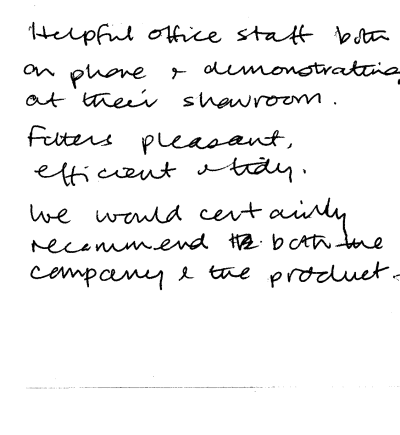 Helpful office staff both
on phone & demonstrating
at their showroom.
Fitters pleasant,
efficient & tidy.
We would certainly
recommend both the
company & the product.